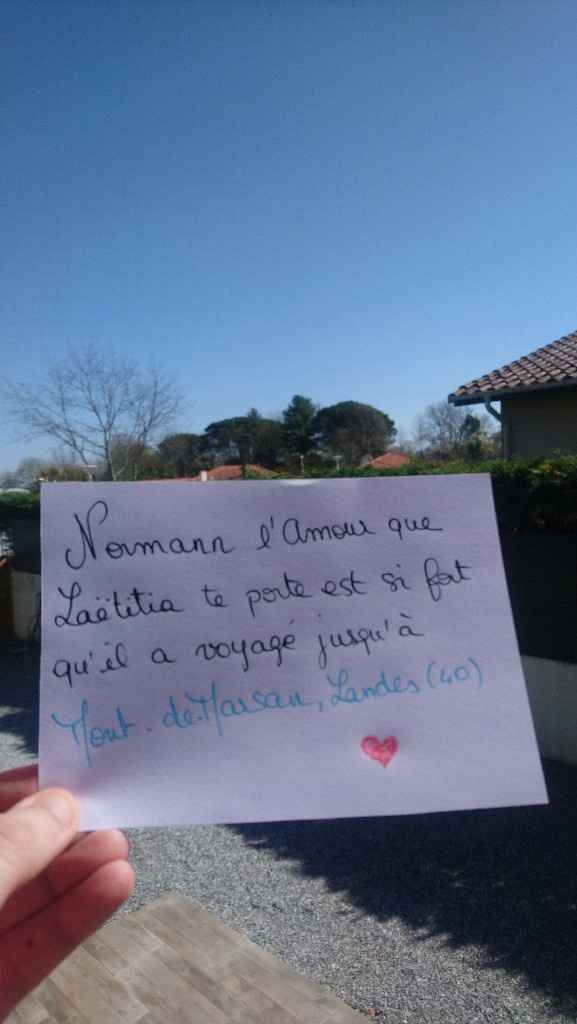 Normann l'Amour que
Laëtitia te porte est si fort
qu'il a voyagé jusqu'à
Mont-de-Marsan, Landes (40)